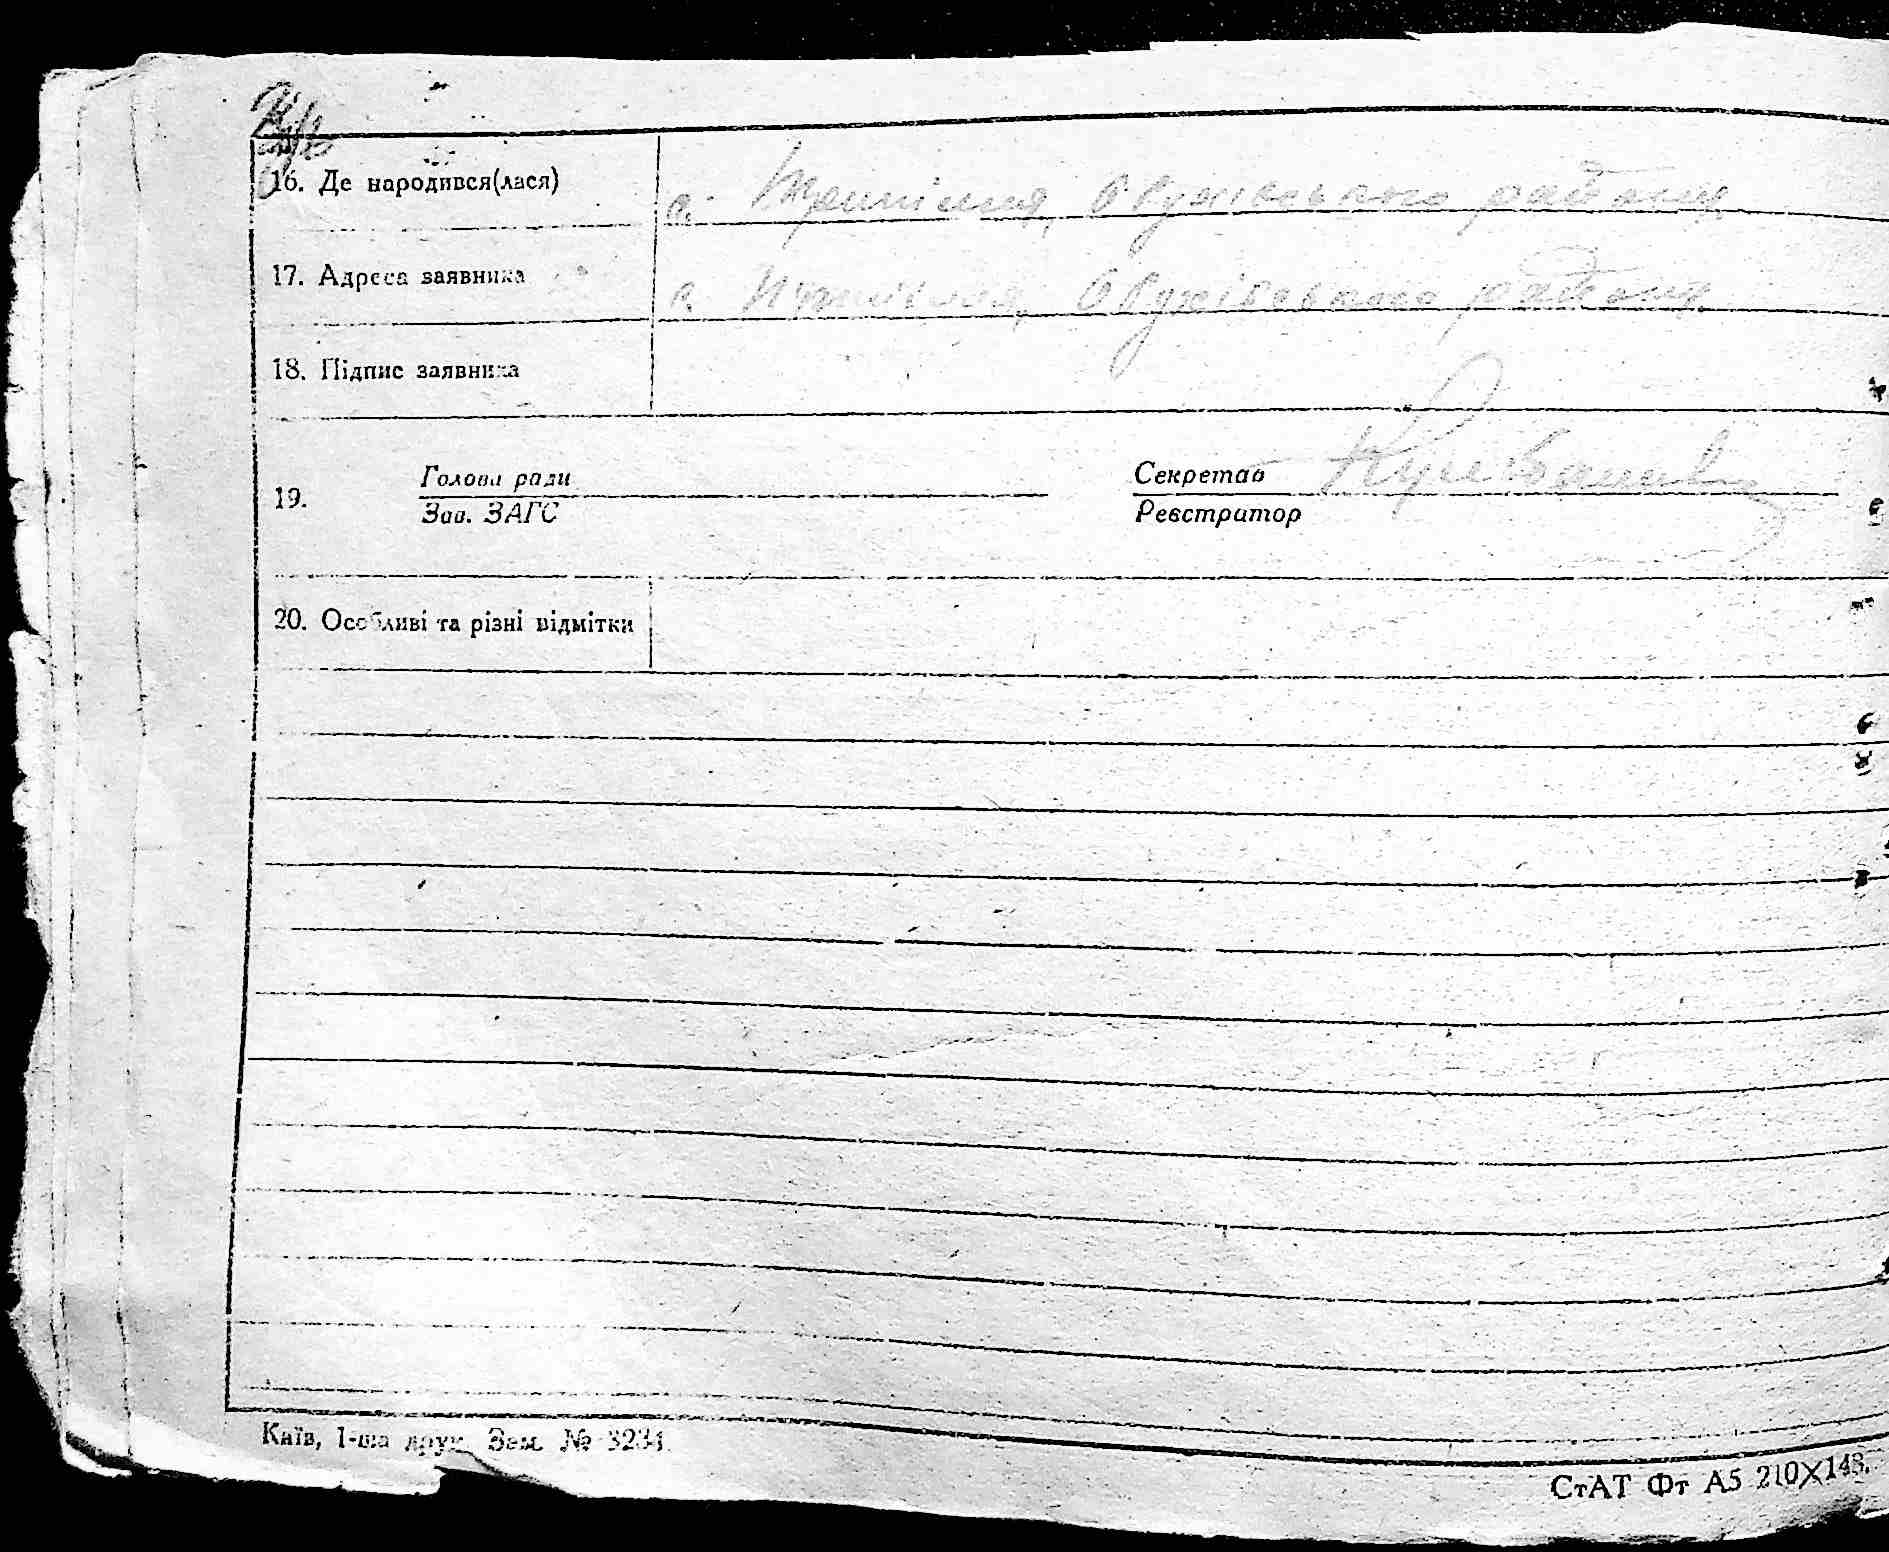 16. Де народився(лася) с. Трипілля, Обухівського району
17. Адреса заявника с. Трипілля, Обухівського району
18. Підпис заявника
Голова ради Секретар
19.
Зав. ЗАГС Реєстратор
20. Особливі та різні відмітки
Київ, 1-ша друк. Зам. № 3234.
СтАТ Фт А5 210×148.